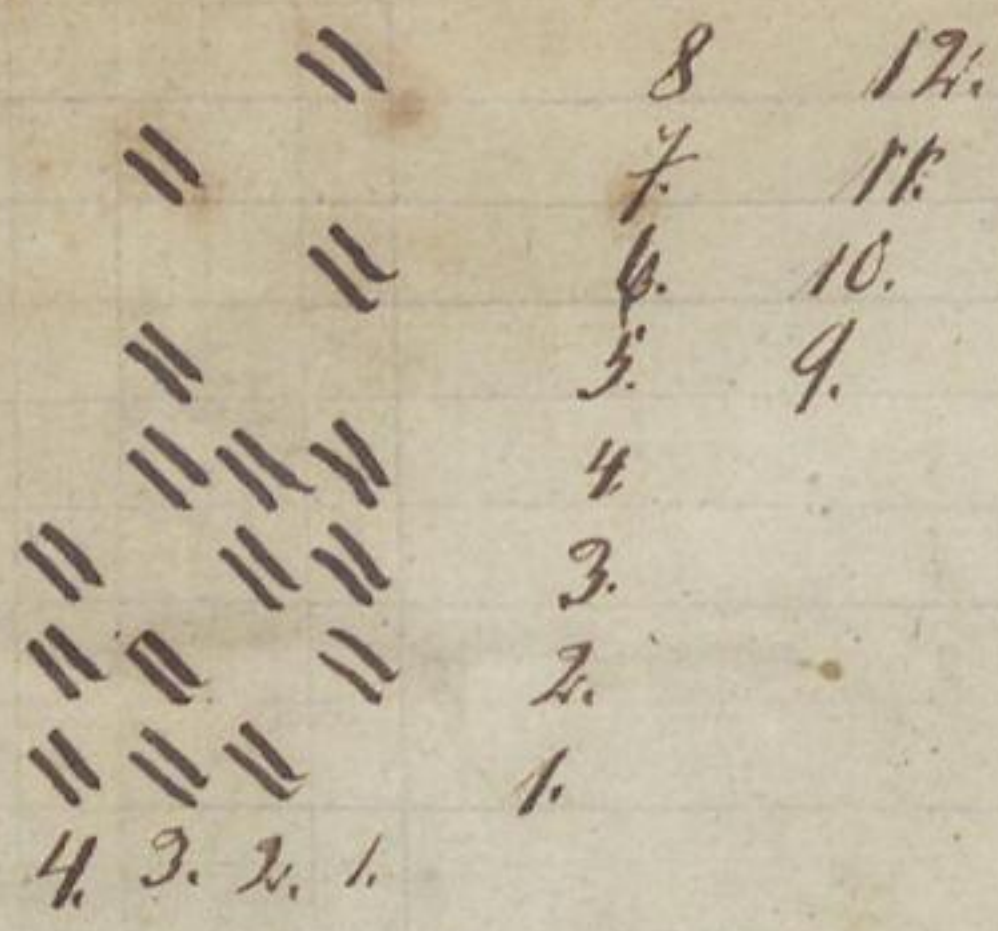 8 12.
7. 11.
6. 10.
5. 9.
4
3.
2.
1.
4. 3. 2. 1.